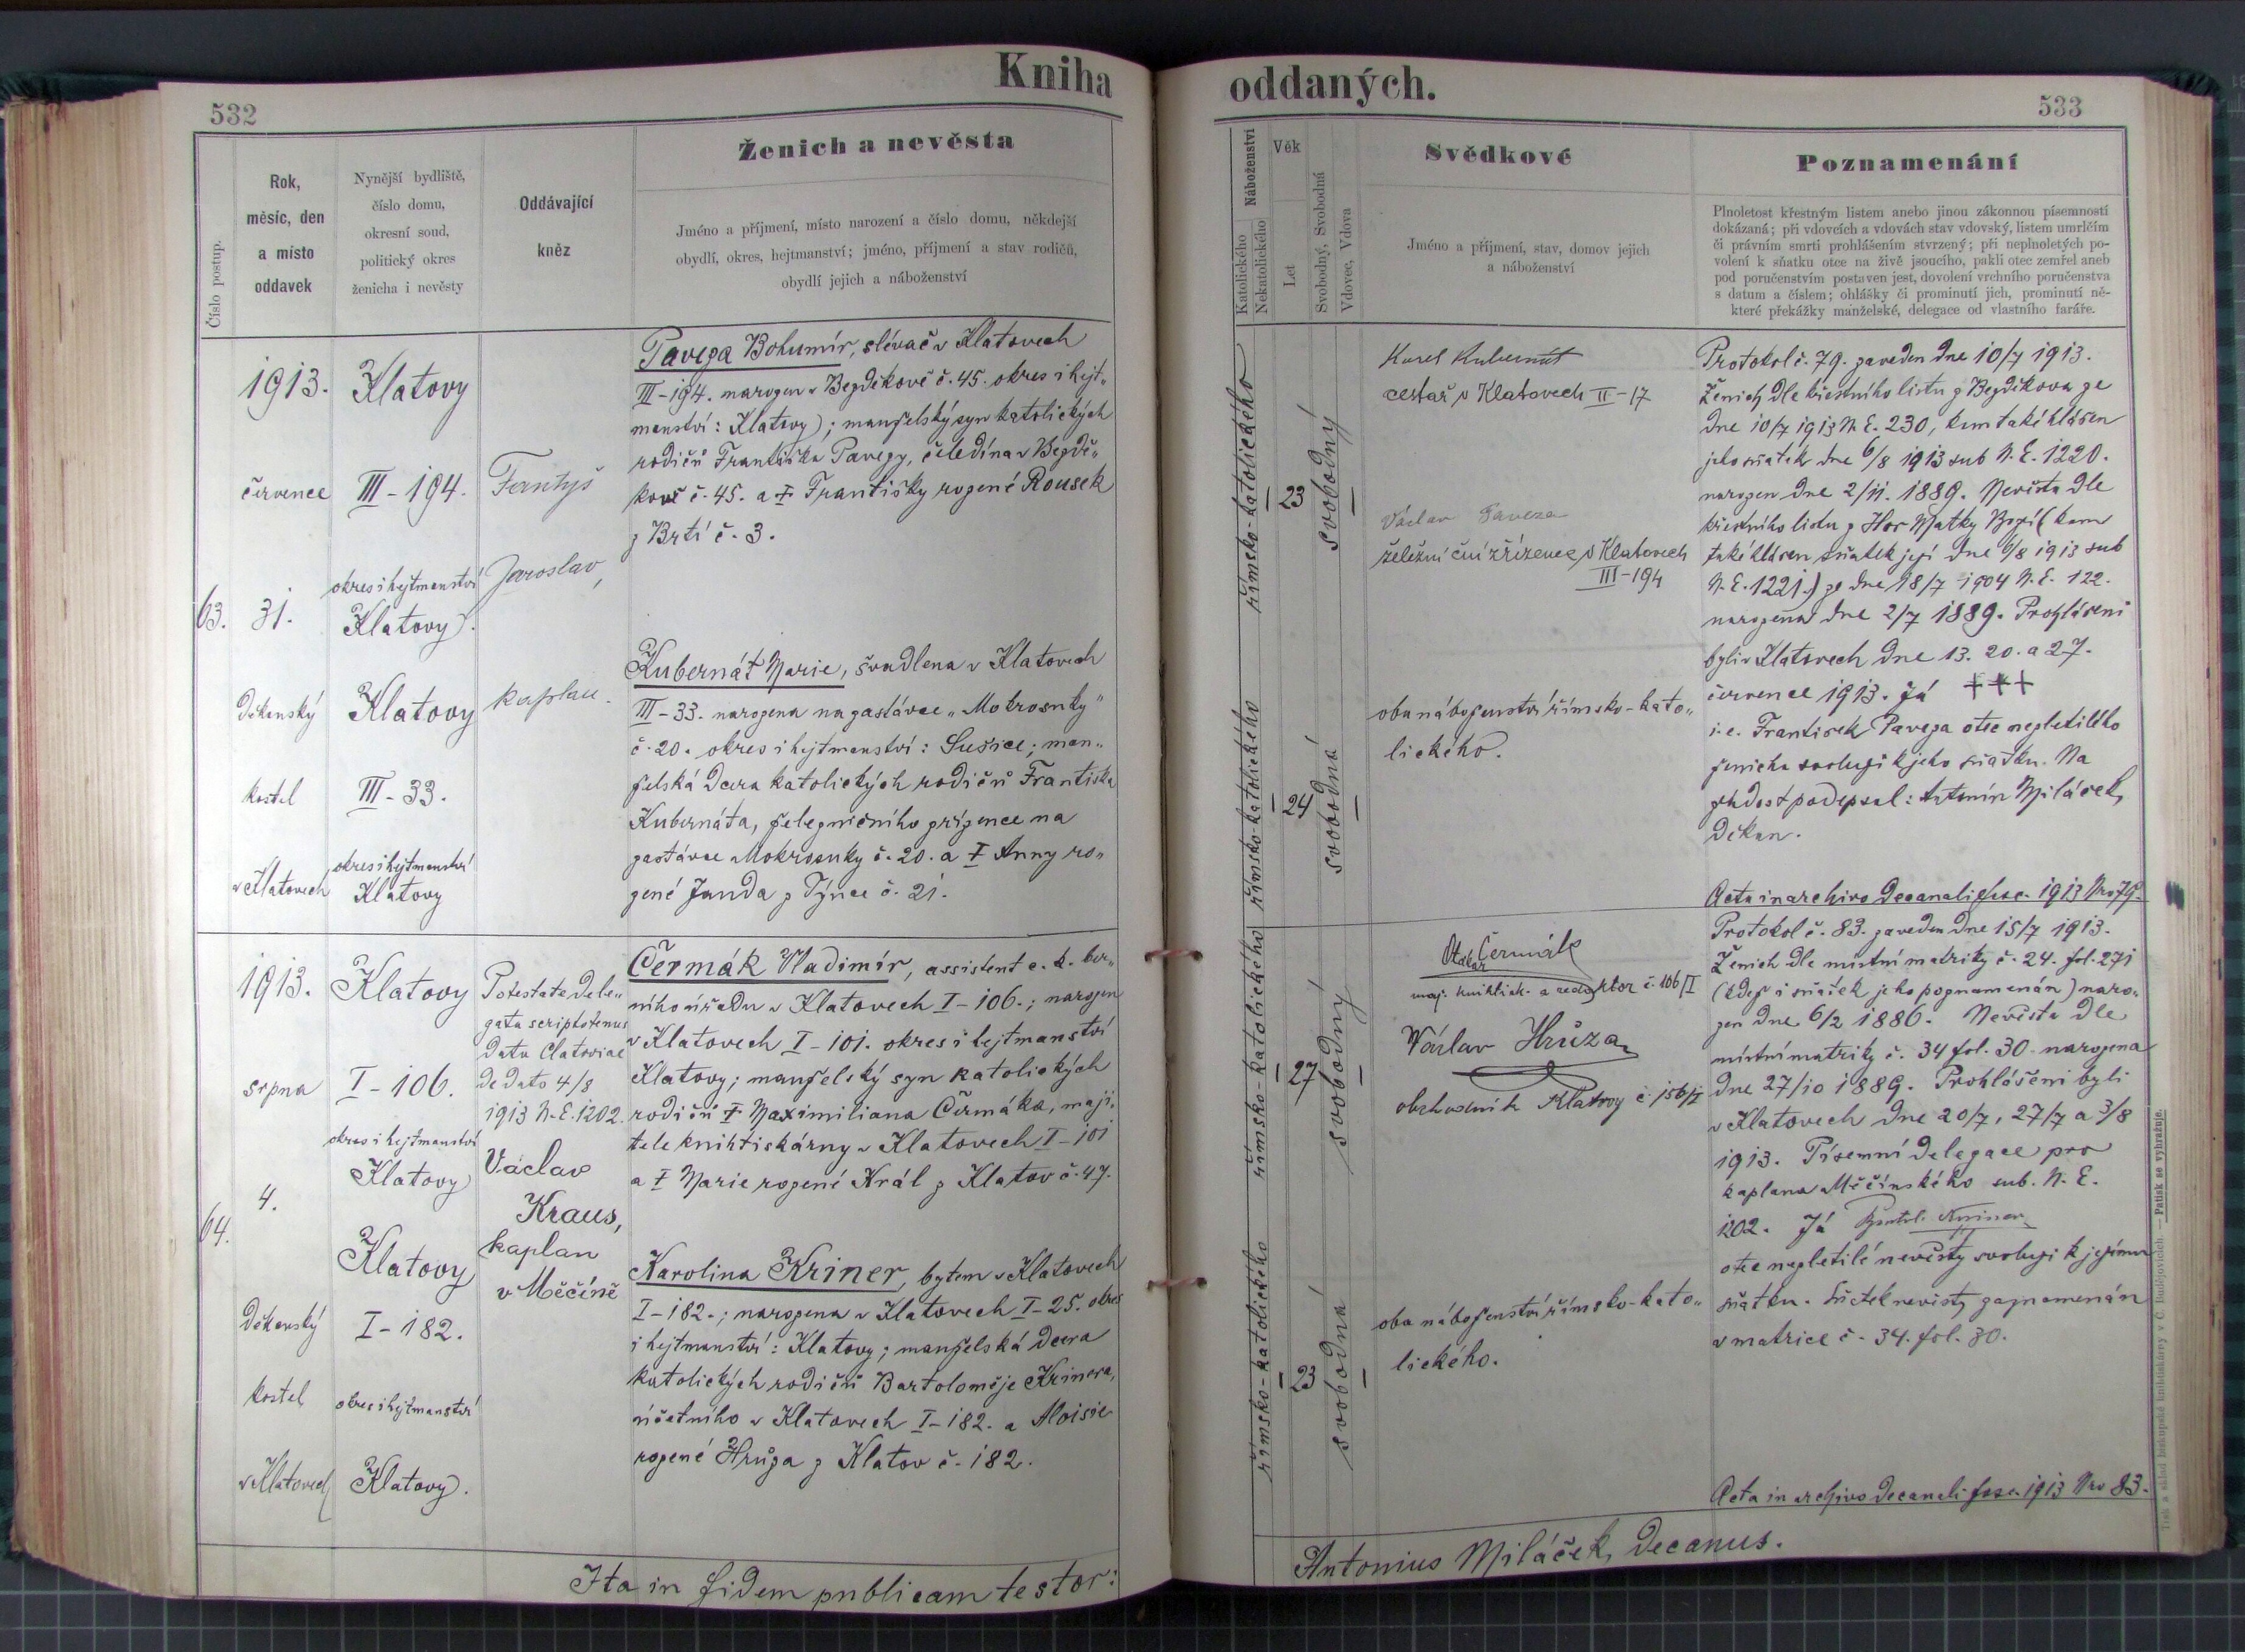 Kniha oddaných.
532
533
Číslo postup.
Rok,
měsíc, den
a místo
oddavek
Nynější bydliště,
číslo domu,
okresní soud,
politický okres
ženicha i nevěsty
Oddávající
kněz
Ženich a nevěsta
Jméno a příjmení, místo narození a číslo domu, někdejší
obydlí, okres, hejtmanství; jméno, příjmení a stav rodičů,
obydlí jejich a náboženství
Náboženství
Katolického
Nekatolického
Věk
Let
Svobodný, Svobodná
Vdovec, Vdova
Svědkové
Jméno a příjmení, stav, domov jejich
a náboženství
Poznamenání
Plnoletost křestným listem anebo jinou zákonnou písemností
dokázaná; při vdovcích a vdovách stav vdovský, listem umrlčím
či právním smrti prohlášením stvrzený; při neplnoletých po-
volení k sňatku otce na živě jsoucího, pakli otec zemřel aneb
pod poručenstvím postaven jest, dovolení vrchního poručenstva
s datum a číslem; ohlášky či prominutí jich, prominutí ně-
které překážky manželské, delegace od vlastního faráře.
63.
1913.
července
31.
děkanský
kostel
v Klatovech
Klatovy
III-194.
okres i hejtmanství
Klatovy).
Klatovy
III-33.
okres i hejtmanství
Klatovy
Fantyš
Jaroslav,
kaplan.
Paveza Bohumír, slévač v Klatovech
III-194. narozen v Bezděkově č. 45. okres i hejt„
manství: Klatovy); manželský syn katolických
rodičů Františka Pavezy, čeledína v Bezdě„
kově č. 45. a † Františky rozené Rousek
z Brtí č. 3.
Kubernát Marie, švadlena v Klatovech
III-33. narozena na zastávce „Mokrosuky"
č. 20. okres i hejtmanství: Sušice; man„
želská dcera katolických rodičů Františka
Kubernáta, železničního zřízence na
zastávce Mokrosuky č. 20. a † Anny ro„
zené Janda z Týnce č. 21.
římsko-katolického
23
svobodný
římsko-katolického
24
svobodná
Karel Kubernát
cestář v Klatovech II-17
Václav Paveza
železniční zřízenec v Klatovech
III-194
oba náboženství římsko-kato„
lického.
Protokol č. 79. zaveden dne 10/7 1913.
Ženich dle křestního listu z Bezděkova ze
dne 10/7 1913 N. E. 230, kam také hlášen
jeho sňatek dne 6/8 1913 sub N. E. 1220.
narozen dne 2/11. 1889. Nevěsta dle
křestního listu z Hor Matky Boží (kam
také hlášen sňatek její dne 6/8 1913 sub
N. E. 1221.) ze dne 18/7 1904 N. E. 122.
narozena dne 2/7 1889. Prohlášeni
byli v Klatovech dne 13. 20. a 27.
července 1913. Já +++
i. e. František Paveza otec nezletilého
ženicha svoluji k jeho sňatku. Na
žádost podepsal: Antonín Miláček,
děkan.
Acta in archivo decanali fasc. 1913 Nro 79.
64.
1913.
srpna
4.
Děkanský
kostel
v Klatovech
Klatovy
I-106.
okres i hejtmanství
Klatovy
Klatovy
I-182.
okres i hejtmanství
Klatovy.
Potestate dele„
gata scriptotenus
data Clatoviae
de dato 4/8
1913 N. E. 1202.
Václav
Kraus,
kaplan
v Měčíně
Čermák Vladimír, assistent c. k. ber„
ního úřadu v Klatovech I-106.; narozen
v Klatovech I-101. okres i hejtmanství
Klatovy; manželský syn katolických
rodičů † Maximiliana Čermáka, maji„
tele knihtiskárny v Klatovech I-101
a † Marie rozené Král z Klatov č. 47.
Karolina Kriner, bytem v Klatovech
I-182.; narozena v Klatovech I-25. okres
i hejtmanství: Klatovy; manželská dcera
katolických rodičů Bartoloměje Krinera,
účetního v Klatovech I-182. a Aloisie
rozené Hrůza z Klatov č. 182.
římsko-katolického
27
svobodný
římsko-katolického
23
svobodná
Otakar Čermák
maj. knihtisk. a redaktor č. 106/I
Václav Hrůza
obchodník Klatovy č. 156/I
oba náboženství římsko-kato„
lického.
Protokol č. 83. zaveden dne 15/7 1913.
Ženich dle místní matriky č. 24. fol. 271
(kdež i sňatek jeho poznamenán) naro„
zen dne 6/2 1886. Nevěsta dle
místní matriky č. 34 fol. 30. narozena
dne 27/10 1889. Prohlášeni byli
v Klatovech dne 20/7, 27/7 a 3/8
1913. Písemní delegace pro
kaplana Měčínského sub. N. E.
1202. Já Bartol. Kriner
otec nezletilé nevěsty svoluji k jejímu
sňatku. Sňatek nevěsty zaznamenán
v matrice č. 34. fol. 30.
Acta in archivo decanali fasc. 1913 Nro 83.
Ita in fidem publicam testor:
Antonius Miláček, decanus.
Tisk a sklad biskupské knihtiskárny v Č. Budějovicích. — Patisk se vyhražuje.